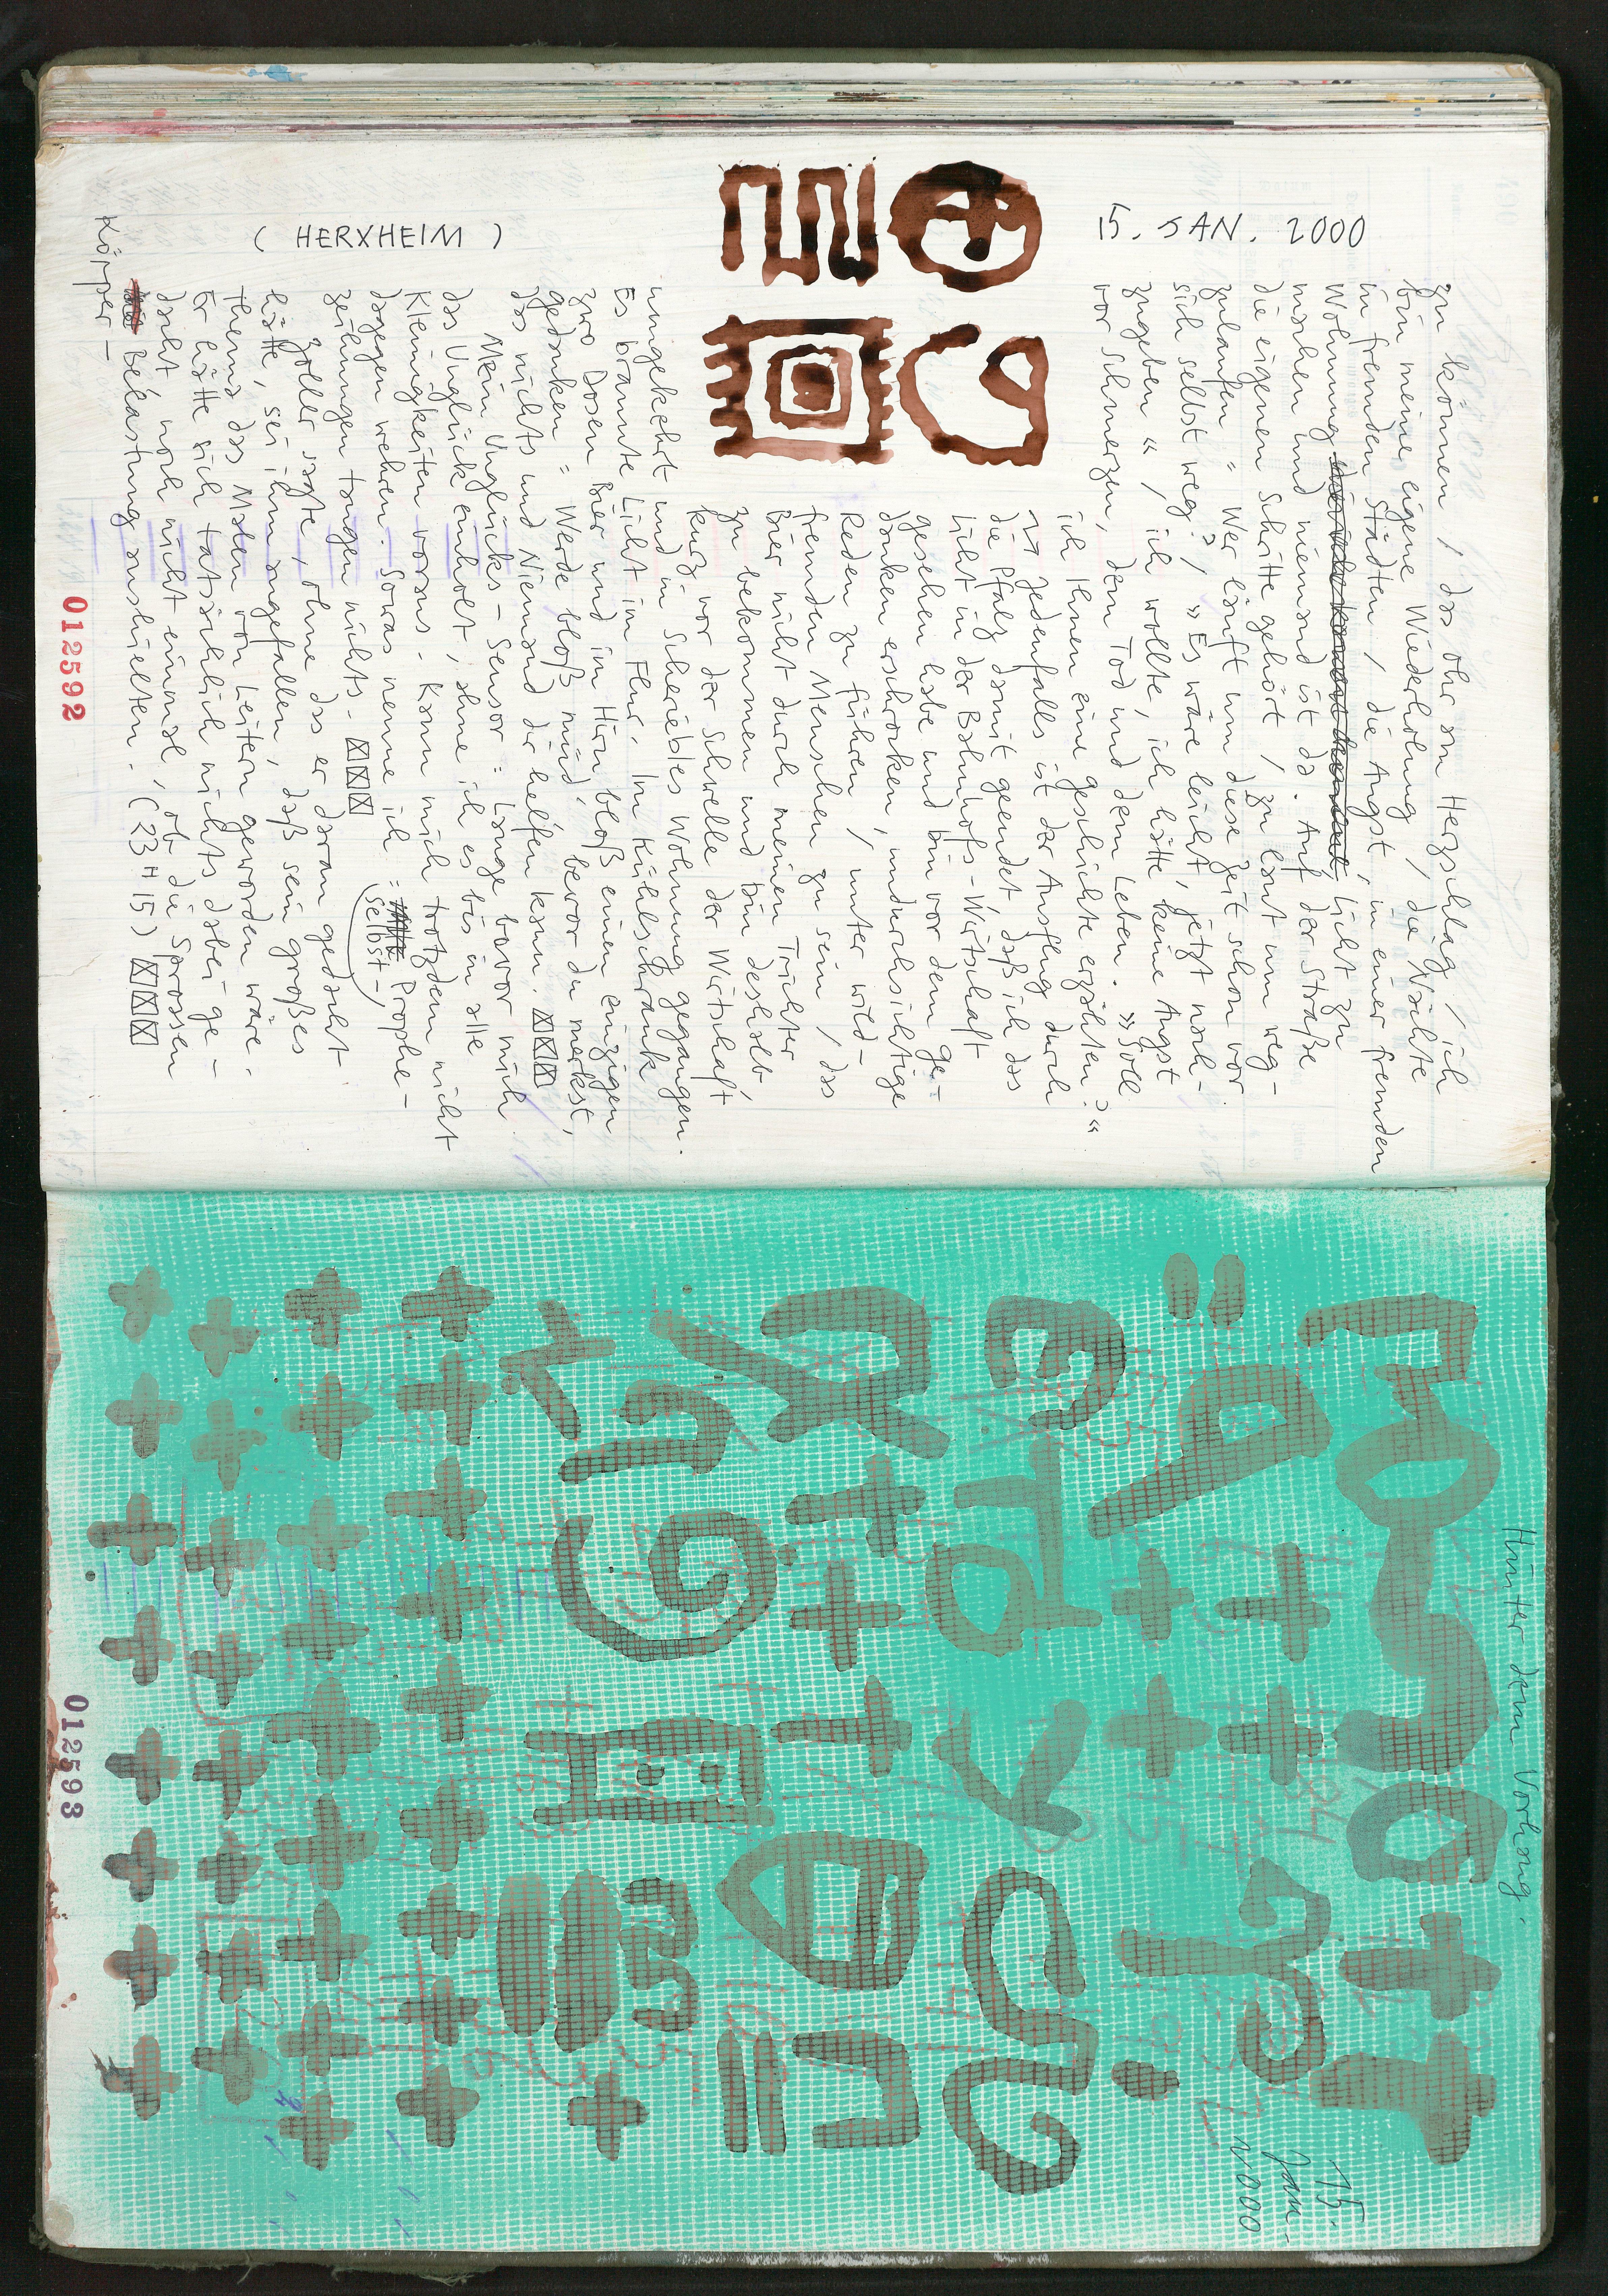 15. JAN. 2000
zu können / das Ohr am Herzschlag / ich
bin meine eigene Wiederholung / die Nächte
in fremden Städten / die Angst, in einer fremden
Wohnung Licht zu
machen und niemand ist da. Auf der Straße
die eigenen Schritte gehört / zu laut um weg-
zulaufen = Wer läuft um diese Zeit schon vor
sich selbst weg? / »Es wäre leicht, jetzt nach-
zugeben« / ich wollte, ich hätte keine Angst
vor Schmerzen, dem Tod und dem Leben. »Soll
ich Ihnen eine Geschichte erzählen?«
Jedenfalls ist der Ausflug durch
die Pfalz damit geendet daß ich das
Licht in der Bahnhofs-Wirtschaft
gesehen habe und bin vor dem Ge-
danken erschrocken, undurchsichtige
Reden zu führen / unter wild-
fremden Menschen zu sein / das
Bier nicht durch meinen Trichter
zu bekommen und bin deshalb
kurz vor der Schwelle der Wirtschaft
umgekehrt und in Scheriebles Wohnung gegangen.
Es brannte Licht im Flur. Im Kühlschrank
zwo Dosen Bier und im Hirn bloß einen einzigen
Gedanken = Werde bloß müd, bevor du merkst,
das nichts und Niemand dir helfen kann.
Mein Unglücks-Sensor = Lange bovor mich
das Unglück einholt, ahne ich es bis in alle
Kleinigkeiten voraus. Kann mich trotzdem nicht
dagegen wehren. Sowas nenne ich = Prophe-
Selbst-
zeihungen taugen nichts.
Zoller sagte, ohne das er daran gedacht
hätte, sei ihm angefallen, daß sein großes
Thema das Malen von Leitern geworden wäre.
Er hätte sich tatsächlich nichts dabei ge-
dacht noch nicht einmal, ob die Sprossen
Belastung aushielten. (23 H 15)
Körper-
( HERXHEIM )
012592
Hinter dem Vorhang.
15.
Jan-
2000
012593